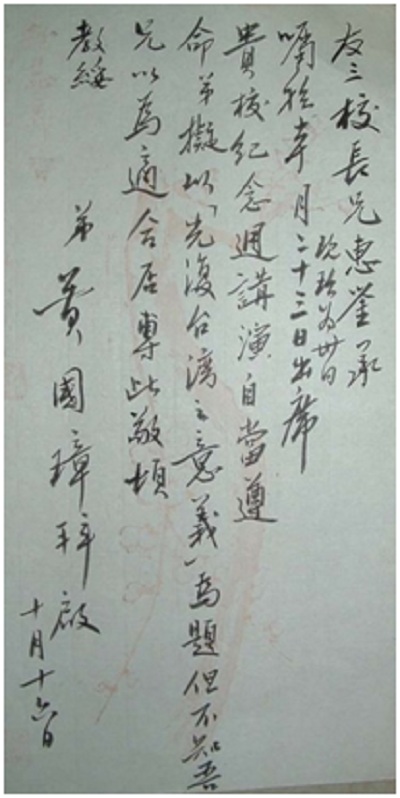 友三校長兄惠鑒承
囑於本月二十三日出席
貴校紀念週講演自當遵
命弟擬以「光復台灣之意義」為題但不知吾
兄以為適合否專此敬頌
教綏
弟黃國璋拜啟
十月十六日